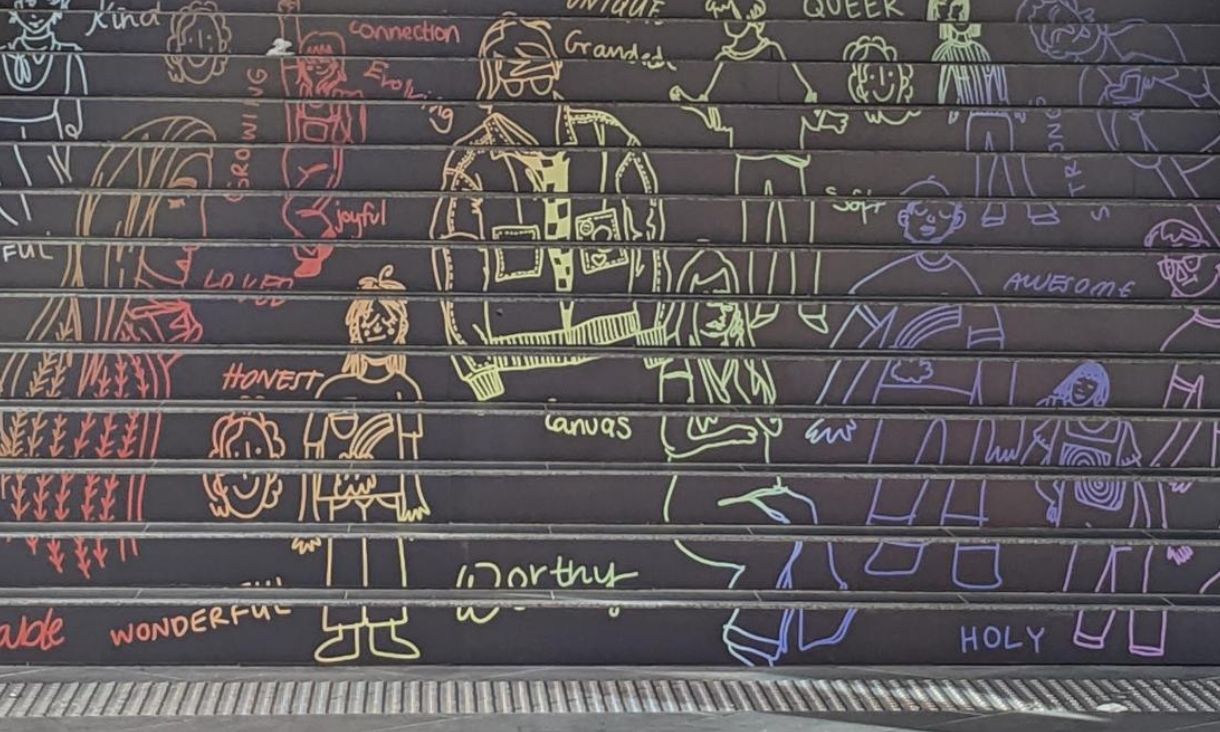 Kind
connection
UNIQUE
QUEER
Evolving
GROWING
STRONG
joyful
Soft
FUL
LOVED
AWESOME
HONEST
Canvas
Worthy
WONDERFUL
HOLY